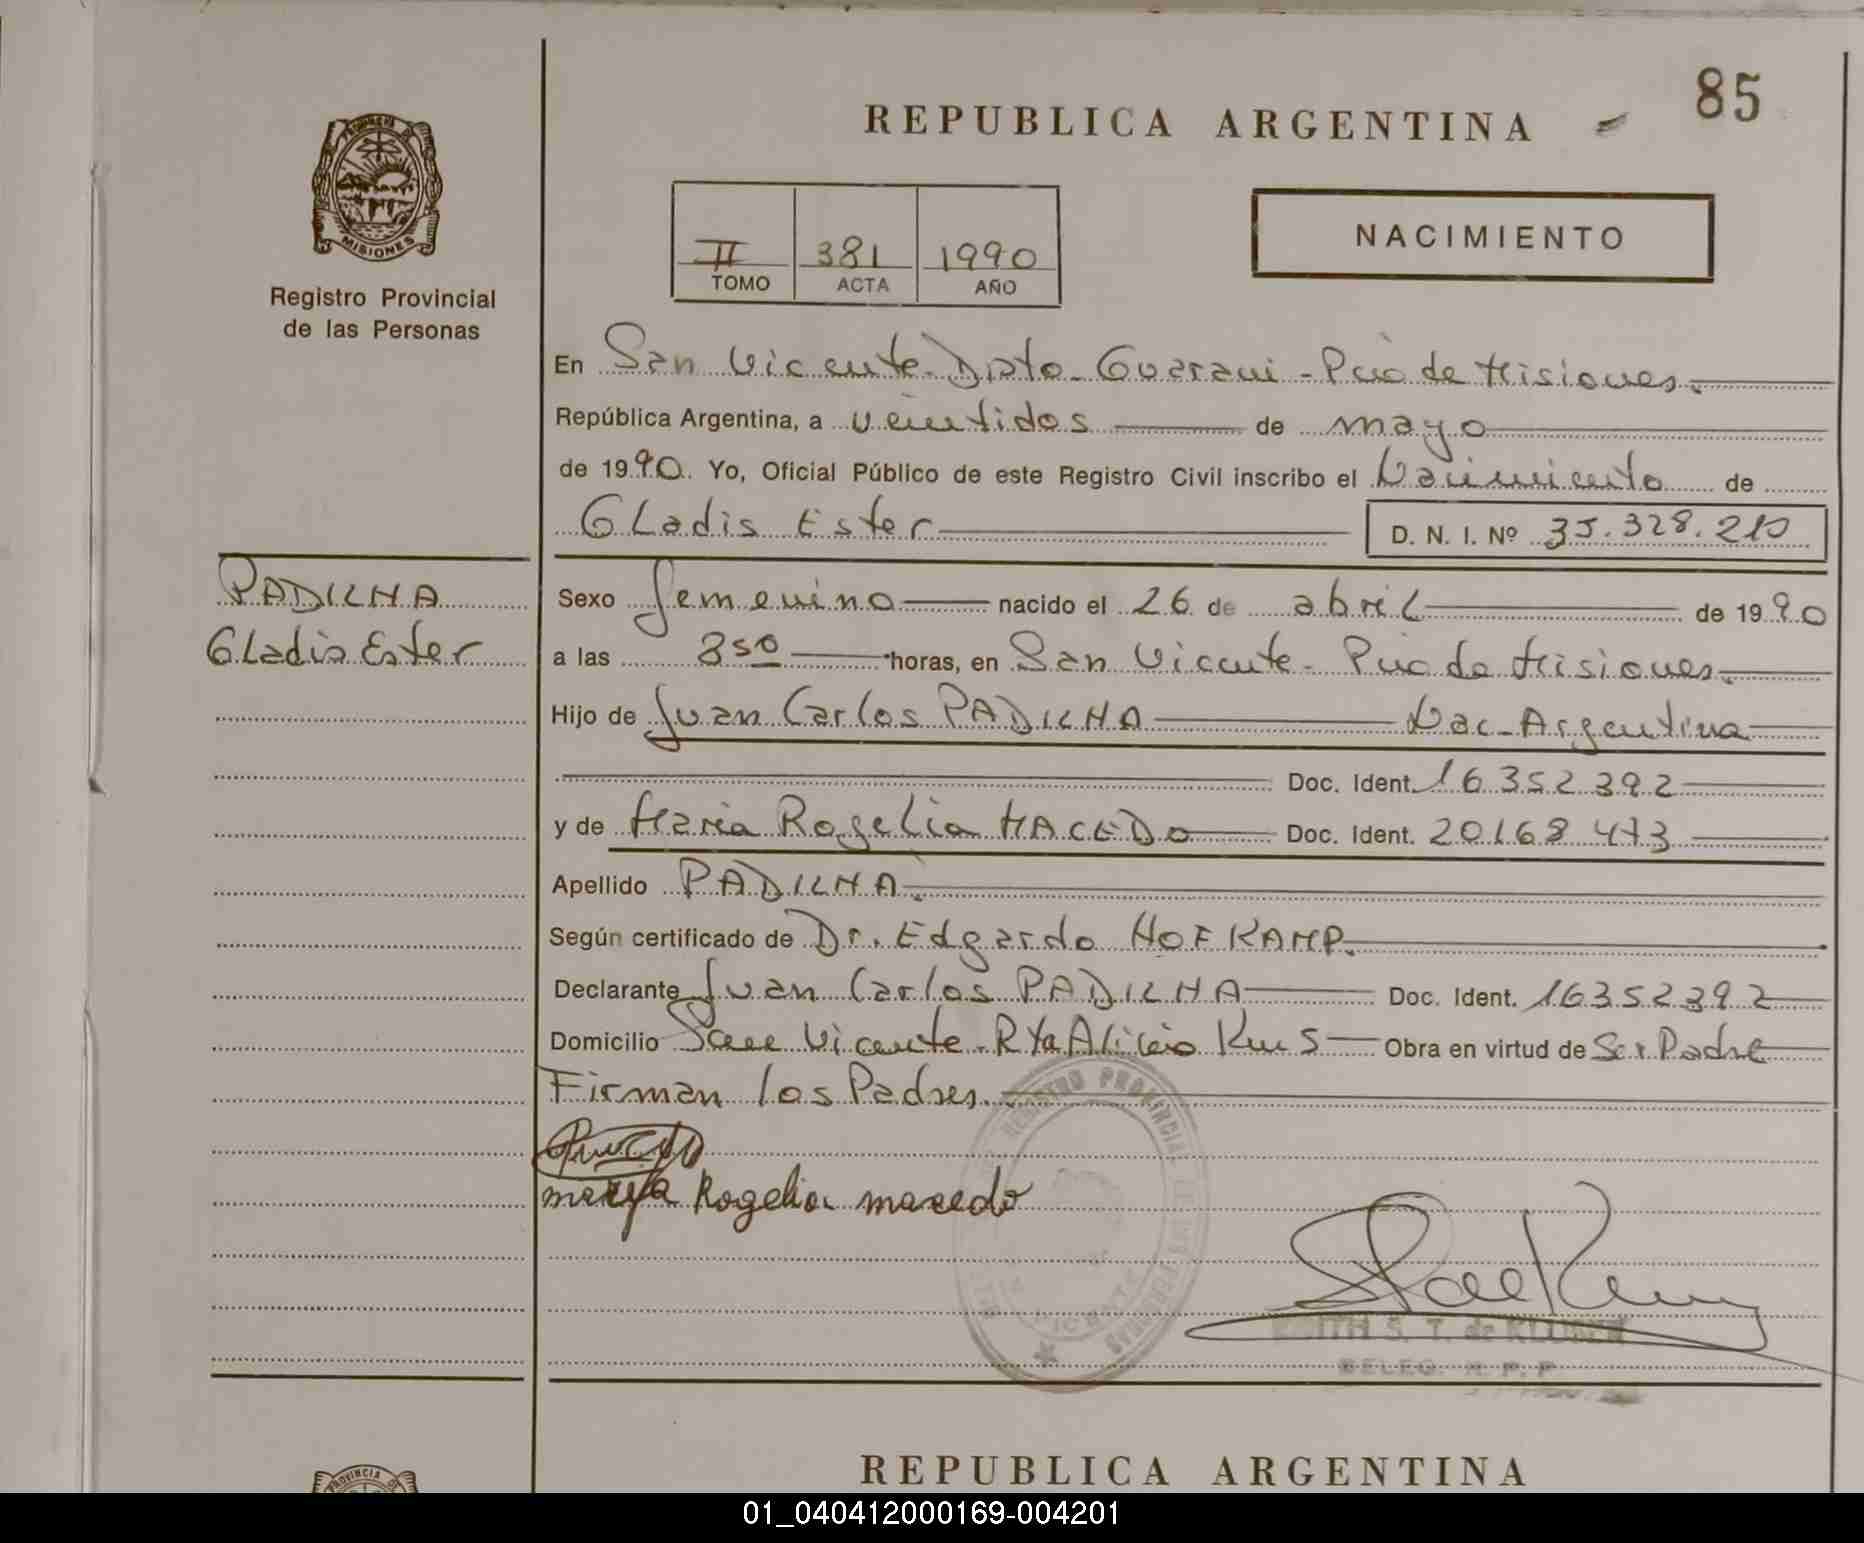 85
REPUBLICA ARGENTINA
MISIONES
Registro Provincial
de las Personas
II 381 1990
TOMO ACTA AÑO
NACIMIENTO
En San Vicente - Dpto - Guarani - Pcia de Misiones.
República Argentina, a veintidos de mayo
de 1990. Yo, Oficial Público de este Registro Civil inscribo el Nacimiento de
Gladis Ester D. N. I. Nº 35.328.210
PADILHA
Gladis Ester
Sexo femenino nacido el 26 de abril de 1990
a las 8 50 horas, en San Vicente - Pcia de Misiones.
Hijo de Juan Carlos PADILHA Nac - Argentina
Doc. Ident. 16352392
y de Maria Rogelia MACEDO Doc. Ident. 20168473
Apellido PADILHA.
Según certificado de Dr. Edgardo HOFKAMP.
Declarante Juan Carlos PADILHA Doc. Ident. 16352392
Domicilio San Vicente - Rta Alicia Km 5 Obra en virtud de Ser Padre
Firman los Padres.
REGISTRO PROVINCIAL DE LAS PERSONAS
Rogelia macedo
S. T. de
DELEG. R. P. P.
REPUBLICA ARGENTINA
PROVINCIA DE
01_040412000169-004201